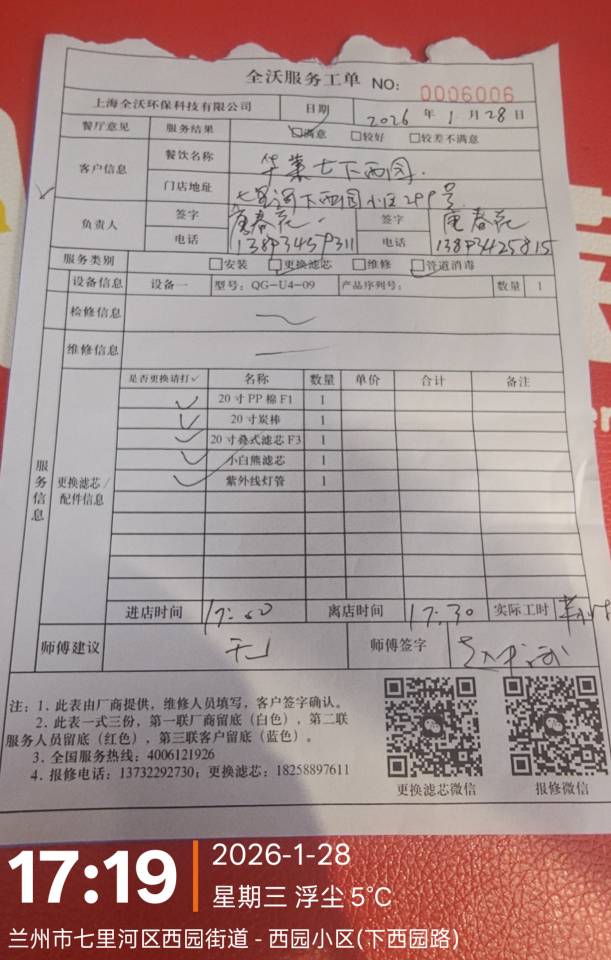 全沃服务工单 NO: 0006006
上海全沃环保科技有限公司 日期 2026 年 1 月 28 日
餐厅意见 服务结果 满意 较好 较差不满意
客户信息 餐饮名称 华莱士下西园.
门店地址 七里河下西园小区299号
负责人 签字 唐春花 签字 唐春花
电话 电话
服务类别 安装 更换滤芯 维修 管道消毒
设备信息 设备一 型号: QG-U4-09 产品序列号: 数量 1
检修信息
维修信息
服务信息
更换滤芯/配件信息
是否更换请打✓ 名称 数量 单价 合计 备注
✓ 20寸PP棉F1 1
✓ 20寸炭棒 1
✓ 20寸叠式滤芯F3 1
✓ 小白熊滤芯 1
✓ 紫外线灯管 1
进店时间 17:00 离店时间 17:30 实际工时
师傅建议 无 师傅签字
注: 1、此表由厂商提供, 维修人员填写, 客户签字确认。
2、此表一式三份, 第一联厂商留底(白色), 第二联
服务人员留底(红色), 第三联客户留底(蓝色)。
3、全国服务热线: 4006121926
4、报修电话: 13732292730; 更换滤芯: 18258897611
更换滤芯微信 报修微信
17:19 2026-1-28
星期三 浮尘 5℃
兰州市七里河区西园街道 - 西园小区(下西园路)